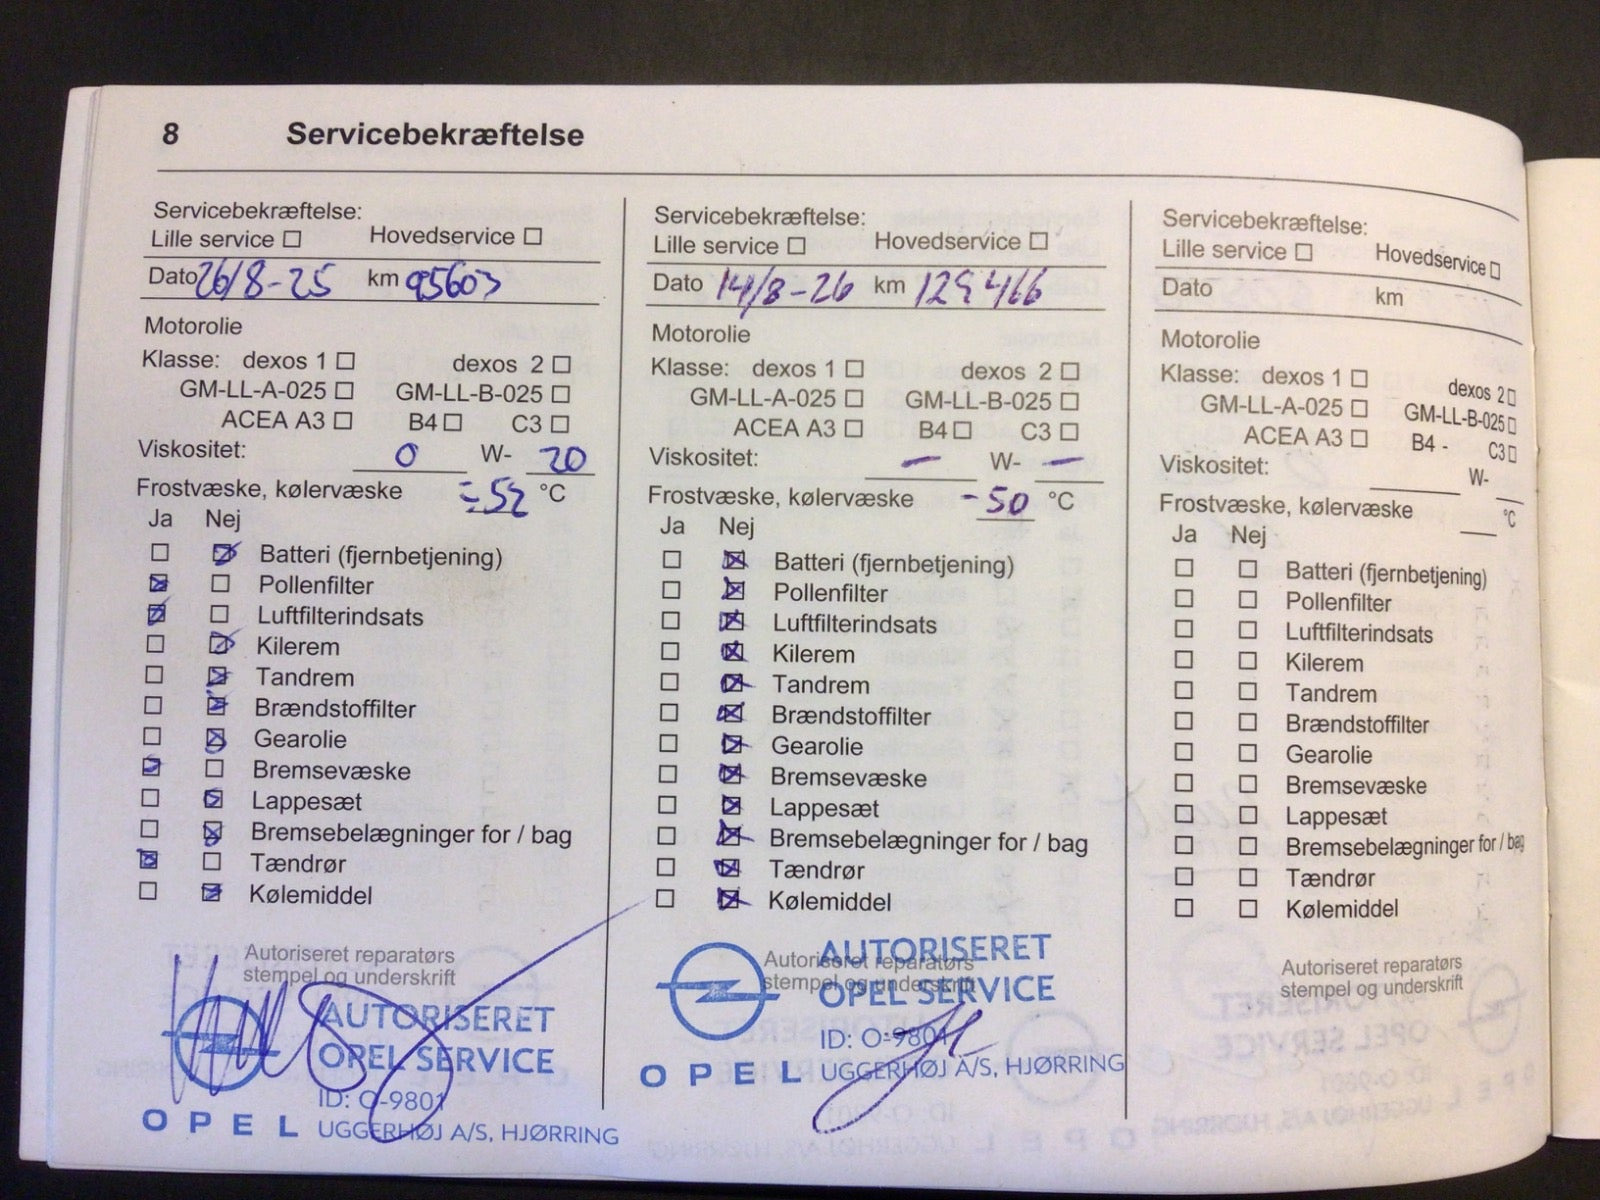 8 Servicebekræftelse
Servicebekræftelse:
Lille service Hovedservice
Dato 26/8-25 km 95603
Motorolie
Klasse: dexos 1 dexos 2
GM-LL-A-025 GM-LL-B-025
ACEA A3 B4 C3
Viskositet: 0 W- 20
Frostvæske, kølervæske -52 °C
Ja Nej
Batteri (fjernbetjening)
Pollenfilter
Luftfilterindsats
Kilerem
Tandrem
Brændstoffilter
Gearolie
Bremsevæske
Lappesæt
Bremsebelægninger for / bag
Tændrør
Kølemiddel
Autoriseret reparatørs
stempel og underskrift
AUTORISERET
OPEL SERVICE
ID: O-9801
OPEL UGGERHØJ A/S, HJØRRING
Servicebekræftelse:
Lille service Hovedservice
Dato 14/8-26 km 129466
Motorolie
Klasse: dexos 1 dexos 2
GM-LL-A-025 GM-LL-B-025
ACEA A3 B4 C3
Viskositet: — W- —
Frostvæske, kølervæske -50 °C
Ja Nej
Batteri (fjernbetjening)
Pollenfilter
Luftfilterindsats
Kilerem
Tandrem
Brændstoffilter
Gearolie
Bremsevæske
Lappesæt
Bremsebelægninger for / bag
Tændrør
Kølemiddel
Autoriseret reparatørs
stempel og underskrift
AUTORISERET
OPEL SERVICE
ID: O-9801
OPEL UGGERHØJ A/S, HJØRRING
Servicebekræftelse:
Lille service Hovedservice
Dato km
Motorolie
Klasse: dexos 1 dexos 2
GM-LL-A-025 GM-LL-B-025
ACEA A3 B4 - C3
Viskositet: W-
Frostvæske, kølervæske °C
Ja Nej
Batteri (fjernbetjening)
Pollenfilter
Luftfilterindsats
Kilerem
Tandrem
Brændstoffilter
Gearolie
Bremsevæske
Lappesæt
Bremsebelægninger for / bag
Tændrør
Kølemiddel
Autoriseret reparatørs
stempel og underskrift